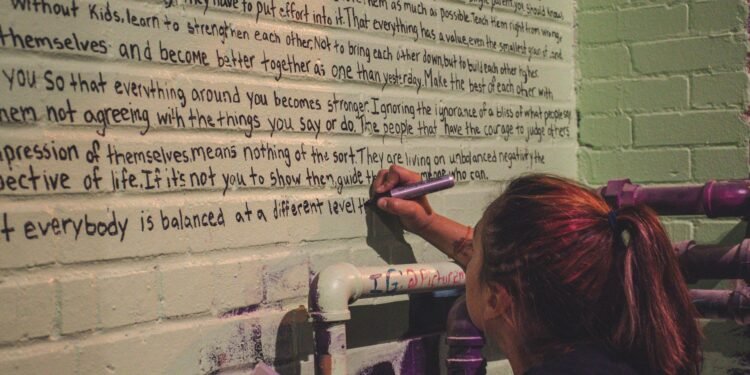 they have to put effort into it. That everything has a value, even the smallest grain of sand
without Kids, learn to strengthen each other. Not to bring each other down, but to build each other higher.
themselves and become better together as one than yesterday. Make the best of each other with
you so that everything around you becomes stronger. Ignoring the ignorance of a bliss of what people say
hem not agreeing with the things you say or do. The people that have the courage to judge others
pression of themselves, means nothing of the sort. They are living on unbalanced negativity the
pective of life. If it's not you to show then, guide who can.
t everybody is balanced at a different level t
IG: @